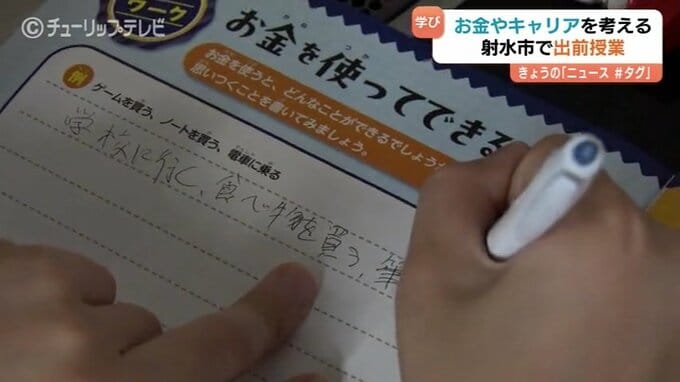 ©チューリップテレビ
学び
お金やキャリアを考える
射水市で出前授業
きょうの「ニュース #タグ」
ワーク
お金を使ってできる
お金を使うと、どんなことができるでしょう
思いつくことを書いてみましょう。
例
ゲームを買う、ノートを買う、電車に乗る
学校に行く、食べ物を買う、筆